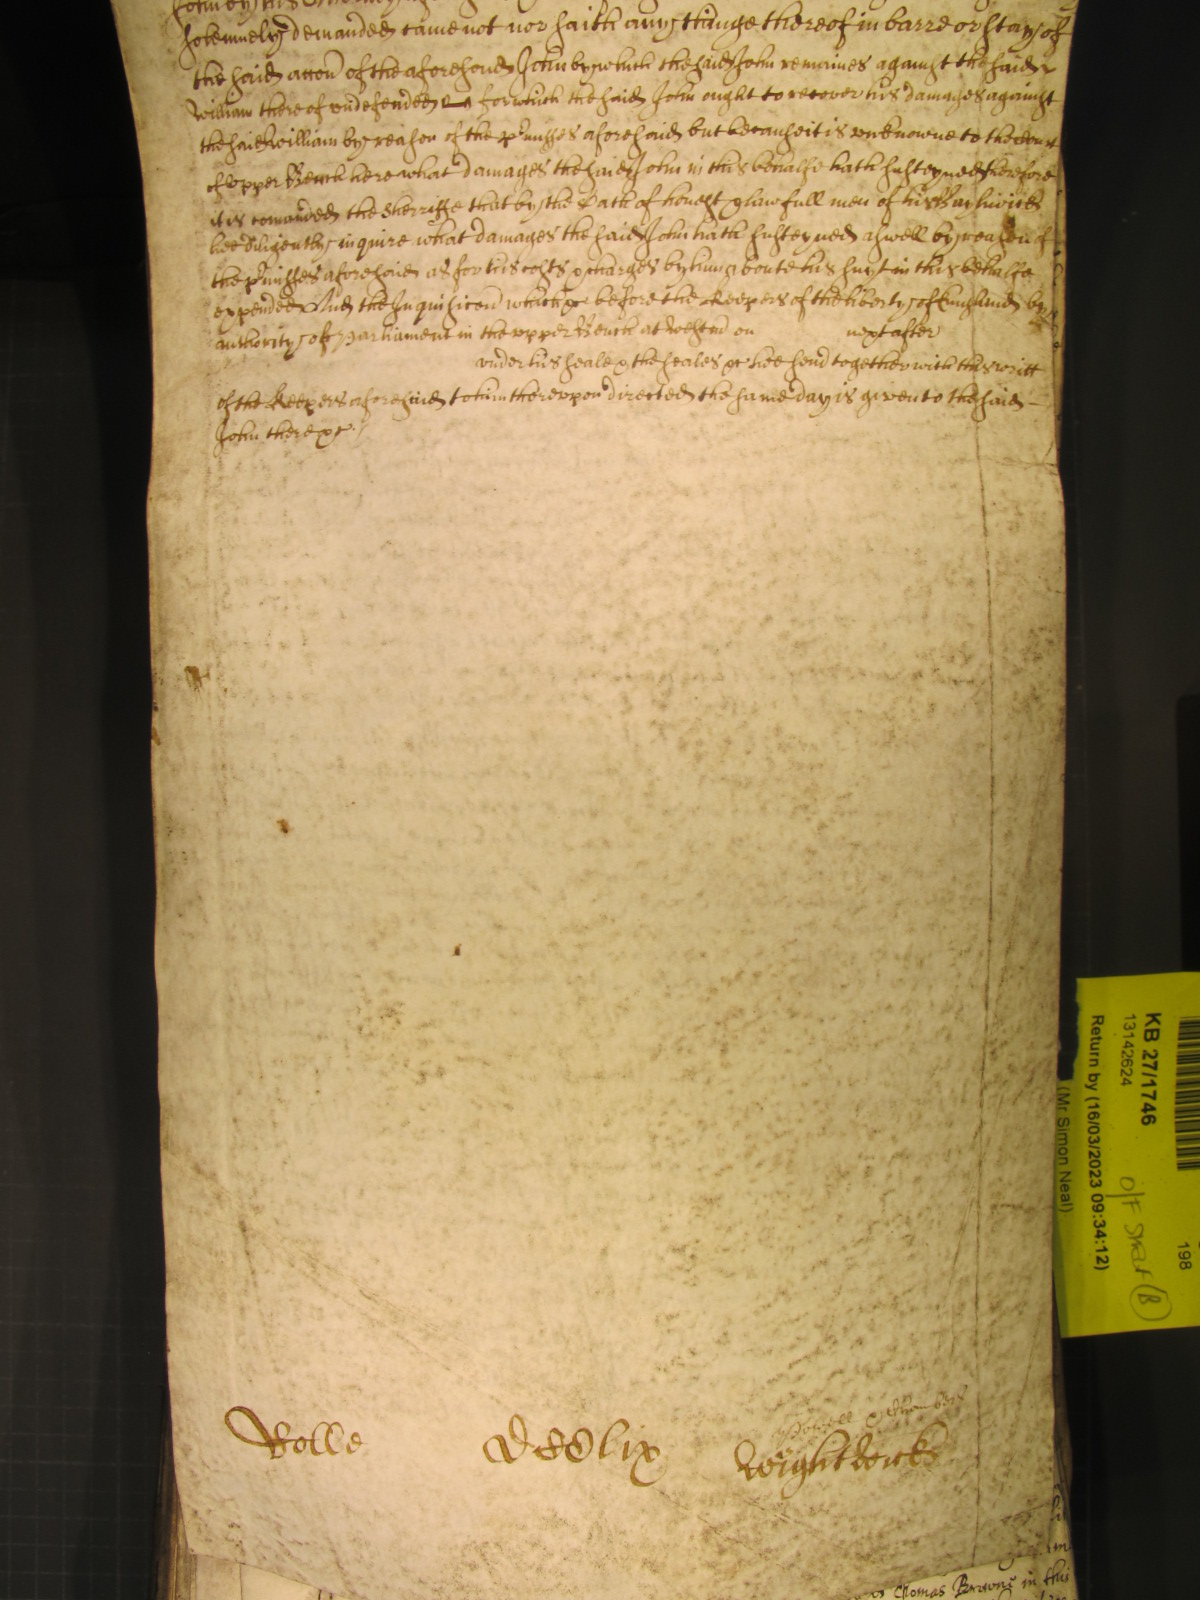 solemnely demanded came not nor saith any thinge thereof in barre or stay of
the said accon of the aforesaid John by which the said John remaines against the said
William thereof undefended for which the said John ought to recover his damages against
the said William by reason of the p'misses aforesaid but because it is unknowne to the Court
of upper Bench here what damages the said John in this behalfe hath susteyned therefore
it is comanded the Sherriffe that by the Oath of honest & lawfull men of his Baylwick
hee diligently inquire what damages the said John hath susteyned aswell by reason of
the p'misses aforesaid as for his costs & charges by him about his suyt in this behalfe
expended And the Inquisicon which &c before the Keepers of the liberty of England by
authority of Parliament in the upper Bench at Westm on next after
under his seale & the seales &c hee send together with this writt
of the Keepers aforesaid to him thereupon directed the same day is given to the said
John there &c
Rolle
DCClix
Wightwick
KB 27/1746
13142624
Return by (16/03/2023 09:34:12)
(Mr Simon Neal)
198
Thomas Browne in